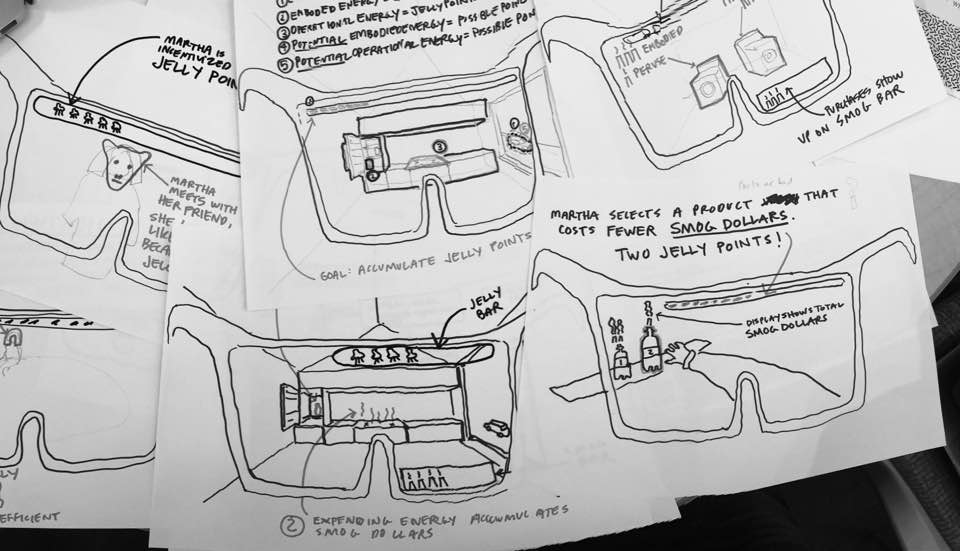 MARTHA IS
INCENTIVIZED
JELLY POIN
MARTHA
MEETS WITH
HER FRIEND,
SHE
LIK
BECA
JEL
② EMBODIED ENERGY =
③ OPERATIONAL ENERGY = JELLY POINTS
④ POTENTIAL EMBODIED ENERGY = POSSIBLE POINT
⑤ POTENTIAL OPERATIONAL ENERGY = POSSIBLE POI
③
GOAL: ACCUMULATE JELLY POINTS
EMBODIED
PER USE
PURCHASES SHOW
UP ON SMOG BAR
MARTHA SELECTS A PRODUCT THAT
COSTS FEWER SMOG DOLLARS.
TWO JELLY POINTS!
DISPLAY SHOWS TOTAL
SMOG DOLLARS
1
2
JELLY
BAR
② EXPENDING ENERGY ACCUMULATES
SMOG DOLLARS
LLY
EFFICIENT